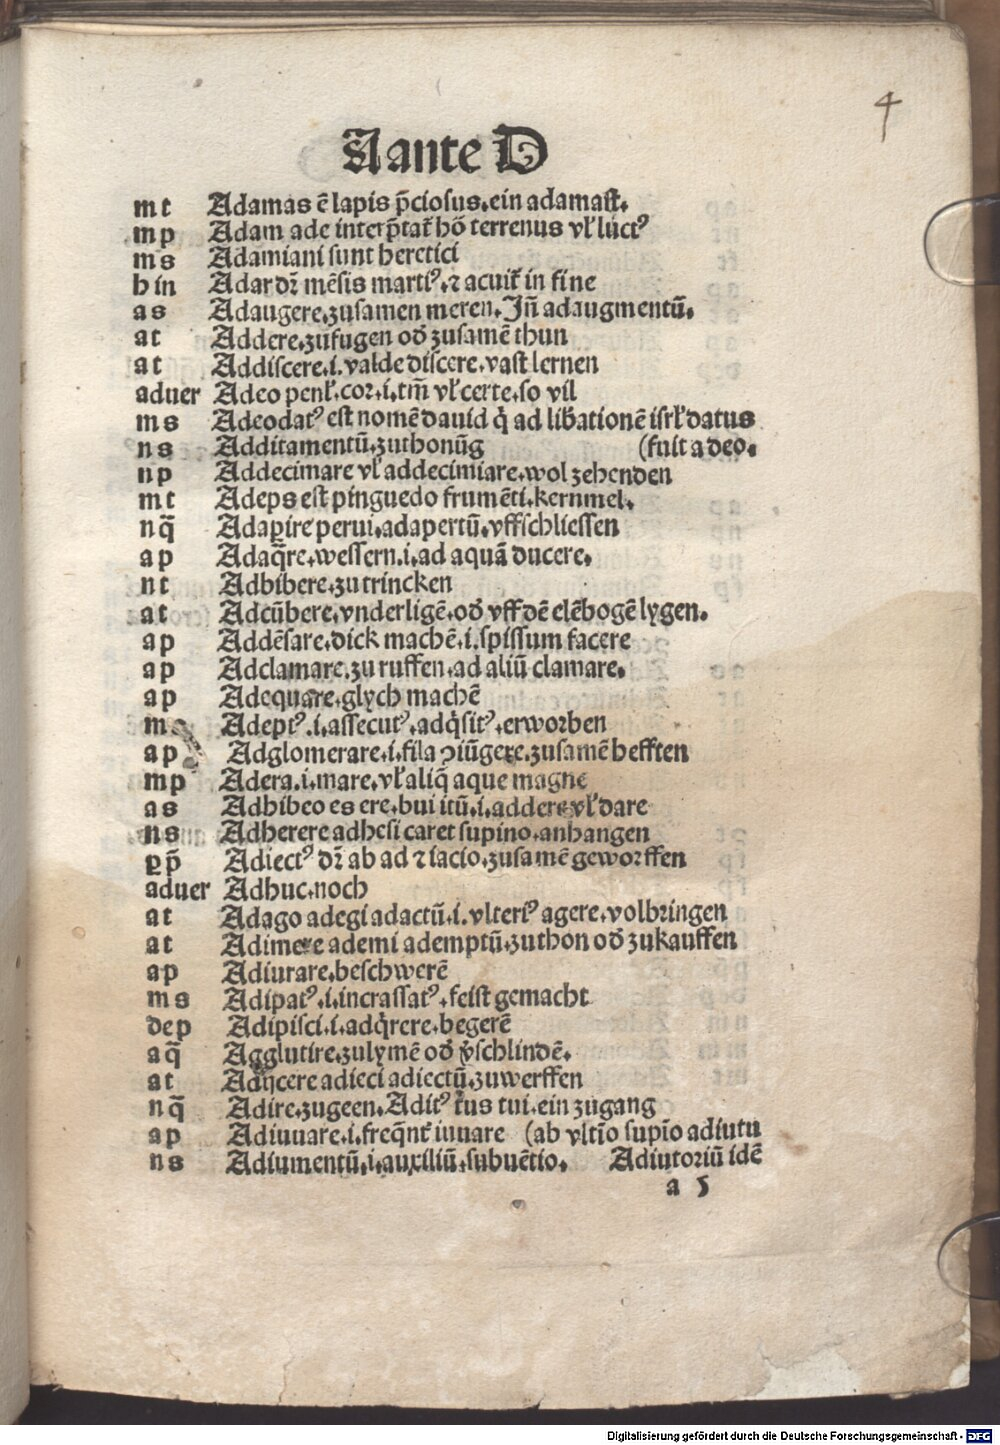 4
A ante D
mt Adamas ē lapis p̄ciosus.ein adamast.
mp Adam ade interp̄tat᷑ hō terrenus vľ lūctꝰ
ms Adamiani sunt heretici
hin Adar dr̄ mēsis martiꝰ.⁊ acuit᷑ in fine
as Adaugere.zusamen meren.Jn̄ adaugmentū.
at Addere.zufugen od̕ zusamē thun
at Addiscere.i.valde discere.vast lernen
aduer Adeo penľ.cor.i.tm̄ vľ certe.so vil
ms Adeodatꝰ est nomē dauid q̇ ad lib̕ationē isrľ datus
ns Additamentū.zuthonūg (fuit a deo.
np Addecimare vľ addecimiare.wol zehenden
mt Adeps est pinguedo frumēti.kernmel.
nq̄ Adaꝑire perui.adapertū.vffschliessen
ap Adaq̄re.wessern.i.ad aquā ducere.
nt Adbibere.zu trincken
at Adcūbere.vnderligē.od̕ vff dē elēbogē lygen.
ap Addēsare.dick machē.i.spissum facere
ap Adclamare.zu ruffen.ad aliū clamare.
ap Adequare.glych machē
ms Adeptꝰ.i.assecutꝰ.adq̇sitꝰ.erworben
ap Adglomerare.i.fila ꝯiūgere.zusamē hefften
mp Adera.i.mare.vľ aliq̄ aque magne
as Adhibeo es ere.bui itū.i.addere vľ dare
ns Adherere adhesi caret supino.anhangen
ꝑp̄ Adiectꝰ dr̄ ab ad ⁊ iacio.zusamē geworffen
aduer Adhuc.noch
at Adago adegi adactū.i.vlteriꝰ agere.volbringen
at Adimere ademi ademptū.zuthon od̕ zukauffen
ap Adiurare.beschwerē
ms Adipatꝰ.i.incrassatꝰ.feist gemacht
dep Adipisci.i.adq̇rere.begerē
aq̄ Agglutire.zulymē od̕ v̕schlindē.
at Adijcere adieci adiectū.zuwerffen
nq̄ Adire.zugeen.Aditꝰ t᷑us tui.ein zugang
ap Adiuuare.i.freq̄nt᷑ iuuare (ab vltīo supīo adiutu
ns Adiumentū.i.auxiliū.subuētio. Adiutoriū idē
a 5
Digitalisierung gefördert durch die Deutsche Forschungsgemeinschaft - DFG